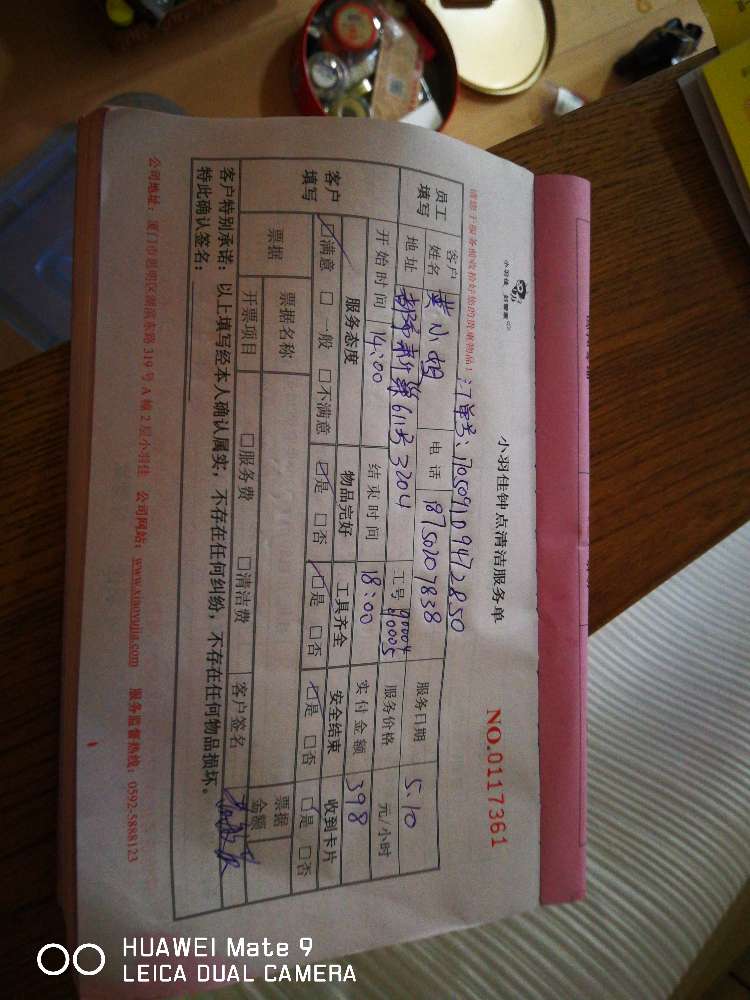 小羽佳 好管家
小羽佳钟点清洁服务单
NO.0117361
请您于服务前收捡好您的贵重物品!
订单号: 70509109472850
员工填写
客户姓名 黄小姐 电话 18750207838 服务日期 5.10
地址 611号3204 工号 90004 90005 服务价格 元/小时
开始时间 14:00 结束时间 18:00 实付金额 398
客户填写
服务态度 物品完好 工具齐全 安全结束 收到卡片
□满意 □一般 □不满意 □是 □否 □是 □否 □是 □否 □是 □否
票据 票据名称 票据金额
开票项目 □服务费 □清洁费 客户签名
客户特别承诺:以上填写经本人确认属实,不存在任何纠纷,不存在任何物品损坏。
特此确认签名:
公司地址:厦门市思明区湖滨东路319号A栋2层小羽佳 公司网站:www.xiaoyujia.com 服务监督热线:0592-5888123
HUAWEI Mate 9
LEICA DUAL CAMERA